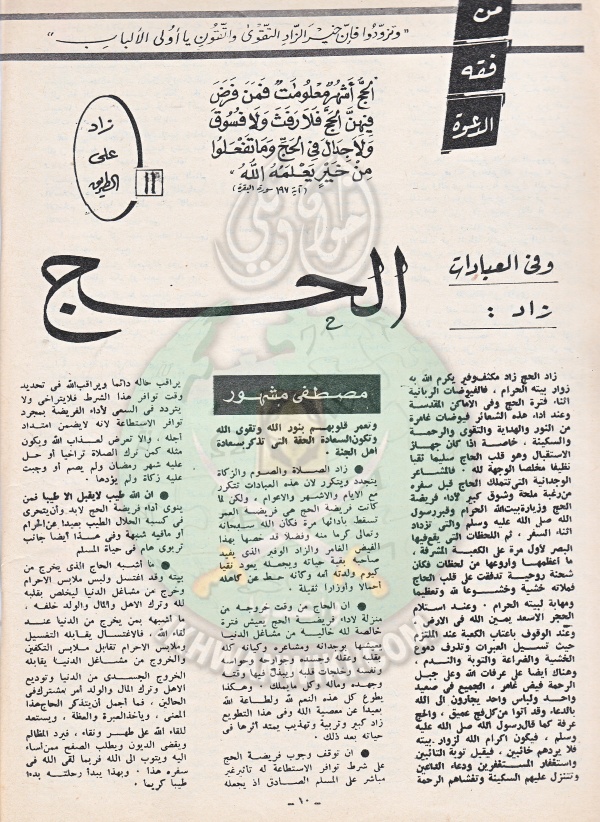 من
فقه
الدعوة
"وتزودوا فإن خير الزاد التقوى واتقون يا أولى الألباب"
الحج أشهر معلومات فمن فرض
فيهن الحج فلا رفث ولا فسوق
ولا جدال في الحج وما تفعلوا
من خير يعلمه الله"
(آية ١٩٧ سورة البقرة)
زاد
على
الطريق
١٣
وفى العبادات
زاد :
الحج
مصطفى مشهور
زاد الحج زاد مكثف وفير يكرم الله به
زوار بيته الحرام ، فالفيوضات الربانية
اثناء فترة الحج وفى الاماكن المقدسة
وعند اداء هذه الشعائر فيوضات غامرة
من النور والهداية والتقوى والرحمة
والسكينة ، خاصة اذا كان جهاز
الاستقبال وهو قلب الحاج سليما نقيا
نظيفا مخلصا الوجهة لله . فالمشاعر
الوجدانية التى تتملك الحاج قبل سفره
من رغبة ملحة وشوق كبير لأداء فريضة
الحج وزيارة بيت الله الحرام وقبر رسول
الله صلى الله عليه وسلم والتى تزداد
اثناء السفر ، ثم اللحظات التى يقع فيها
البصر لأول مرة على الكعبة المشرفة ،
ما أعظمها واروعها من لحظات فكأن
شحنة روحية تدفقت على قلب الحاج
فملأته خشية وخشوعا لله وتعظيما
ومهابة لبيته الحرام . وعند استلام
الحجر الاسعد يمين الله فى الارض
وعند الوقوف باعتاب الكعبة عند الملتزم
حيث تسيل العبرات وتذرف دموع
الخشية والضراعة والتوبة والندم ،
وهناك ايضا على عرفات الله وعلى جبل
الرحمة فيض غامر ، الجميع فى صعيد
واحد ولباس واحد يجأرون الى الله
بالدعاء وقد أتوا من كل فج عميق ، والحج
عرفة كما قال رسول الله صلى الله عليه
وسلم ، فيكون اكرام الله لزوار بيته
فلا يردهم خائبين ، فيقبل توبة التائبين
واستغفار المستغفرين ودعاء الداعين
وتتنزل عليهم السكينة وتغشاهم الرحمة
وتعمر قلوبهم بنور الله وتقوى الله
وتكون السعادة الحقة التى تذكر بسعادة
اهل الجنة .
● زاد الصلاة والصوم والزكاة
يتجدد ويتكرر لأن هذه العبادات تتكرر
مع الايام والاشهر والاعوام ، ولكن لما
كانت فريضة الحج هى فريضة العمر
تسقط بادائها مرة فكأن الله سبحانه
وتعالى كرما منه وفضلا قد خصها بهذا
الفيض الغامر والزاد الوفير الذى يفيد
صاحبه بقية حياته ويجعله يعود نقيا
كيوم ولدته أمه وكأنه حط عن كاهله
أحمالا وأوزارا ثقيلة .
● ان الحاج من وقت خروجه من
منزله لأداء فريضة الحج يعيش فترة
خالصة لله خالية من مشاغل الدنيا
يعيشها بوجدانه ومشاعره وكيانه كله
وجهده وماله وكل مايملك ، وهكذا
يطوع كل هذه النعم لله ولطاعة الله
بعيدا عن معصية الله وفى هذا التطويع
زاد كبير وتربية وتهذيب يمتد أثرها فى
حياته بعد ذلك .
● ان توقف وجوب فريضة الحج
على شرط توافر الاستطاعة له تأثير غير
مباشر على المسلم الصادق اذ يجعله
يراقب حاله دائما ويراقب الله فى تحديد
وقت توافر هذا الشرط فلا يتراخى ولا
يتردد فى السعى لأداء الفريضة بمجرد
توافر الاستطاعة لانه لايضمن امتداد
أجله ، والا تعرض لعذاب الله ويكون
مثله كمن ترك الصلاة تراخيا أو حل
عليه شهر رمضان ولم يصم أو وجبت
عليه زكاة ولم يؤدها .
● ان الله طيب لايقبل الا طيبا فمن
ينوى أداء فريضة الحج لابد وأن يتحرى
فى كسبه الحلال الطيب بعيدا عن الحرام
أو مافيه شبهة وفى هذا أيضا جانب
تربوى هام فى حياة المسلم
● ما أشبه الحاج الذى يخرج من
بيته وقد اغتسل ولبس ملابس الاحرام
وخرج من مشاغل الدنيا ليخلص بقلبه
لله وترك الاهل والمال والولد خلفه ،
ما أشبهه بمن يخرج من الدنيا عند
لقاء الله ، فالاغتسال يقابله التغسيل
وملابس الاحرام تقابل ملابس التكفين
والخروج من مشاغل الدنيا يقابله
الخروج الجسدى من الدنيا وتوديع
الاهل وترك المال والولد أمر مشترك فى
الحالين ، فما أجمل أن يتذكر الحاج هذا
المعنى ، ويأخذ العبرة والعظة ، ويستعد
للقاء الله على طهر ونقاء ، فيرد المظالم
ويقضى الديون ويطلب الصفح ممن أساء
اليه ويتوب الى الله فربما لقى الله فى
سفره هذا . وبهذا يبدأ رحلته بدءا
طيبا كريما .
- ١٠ -